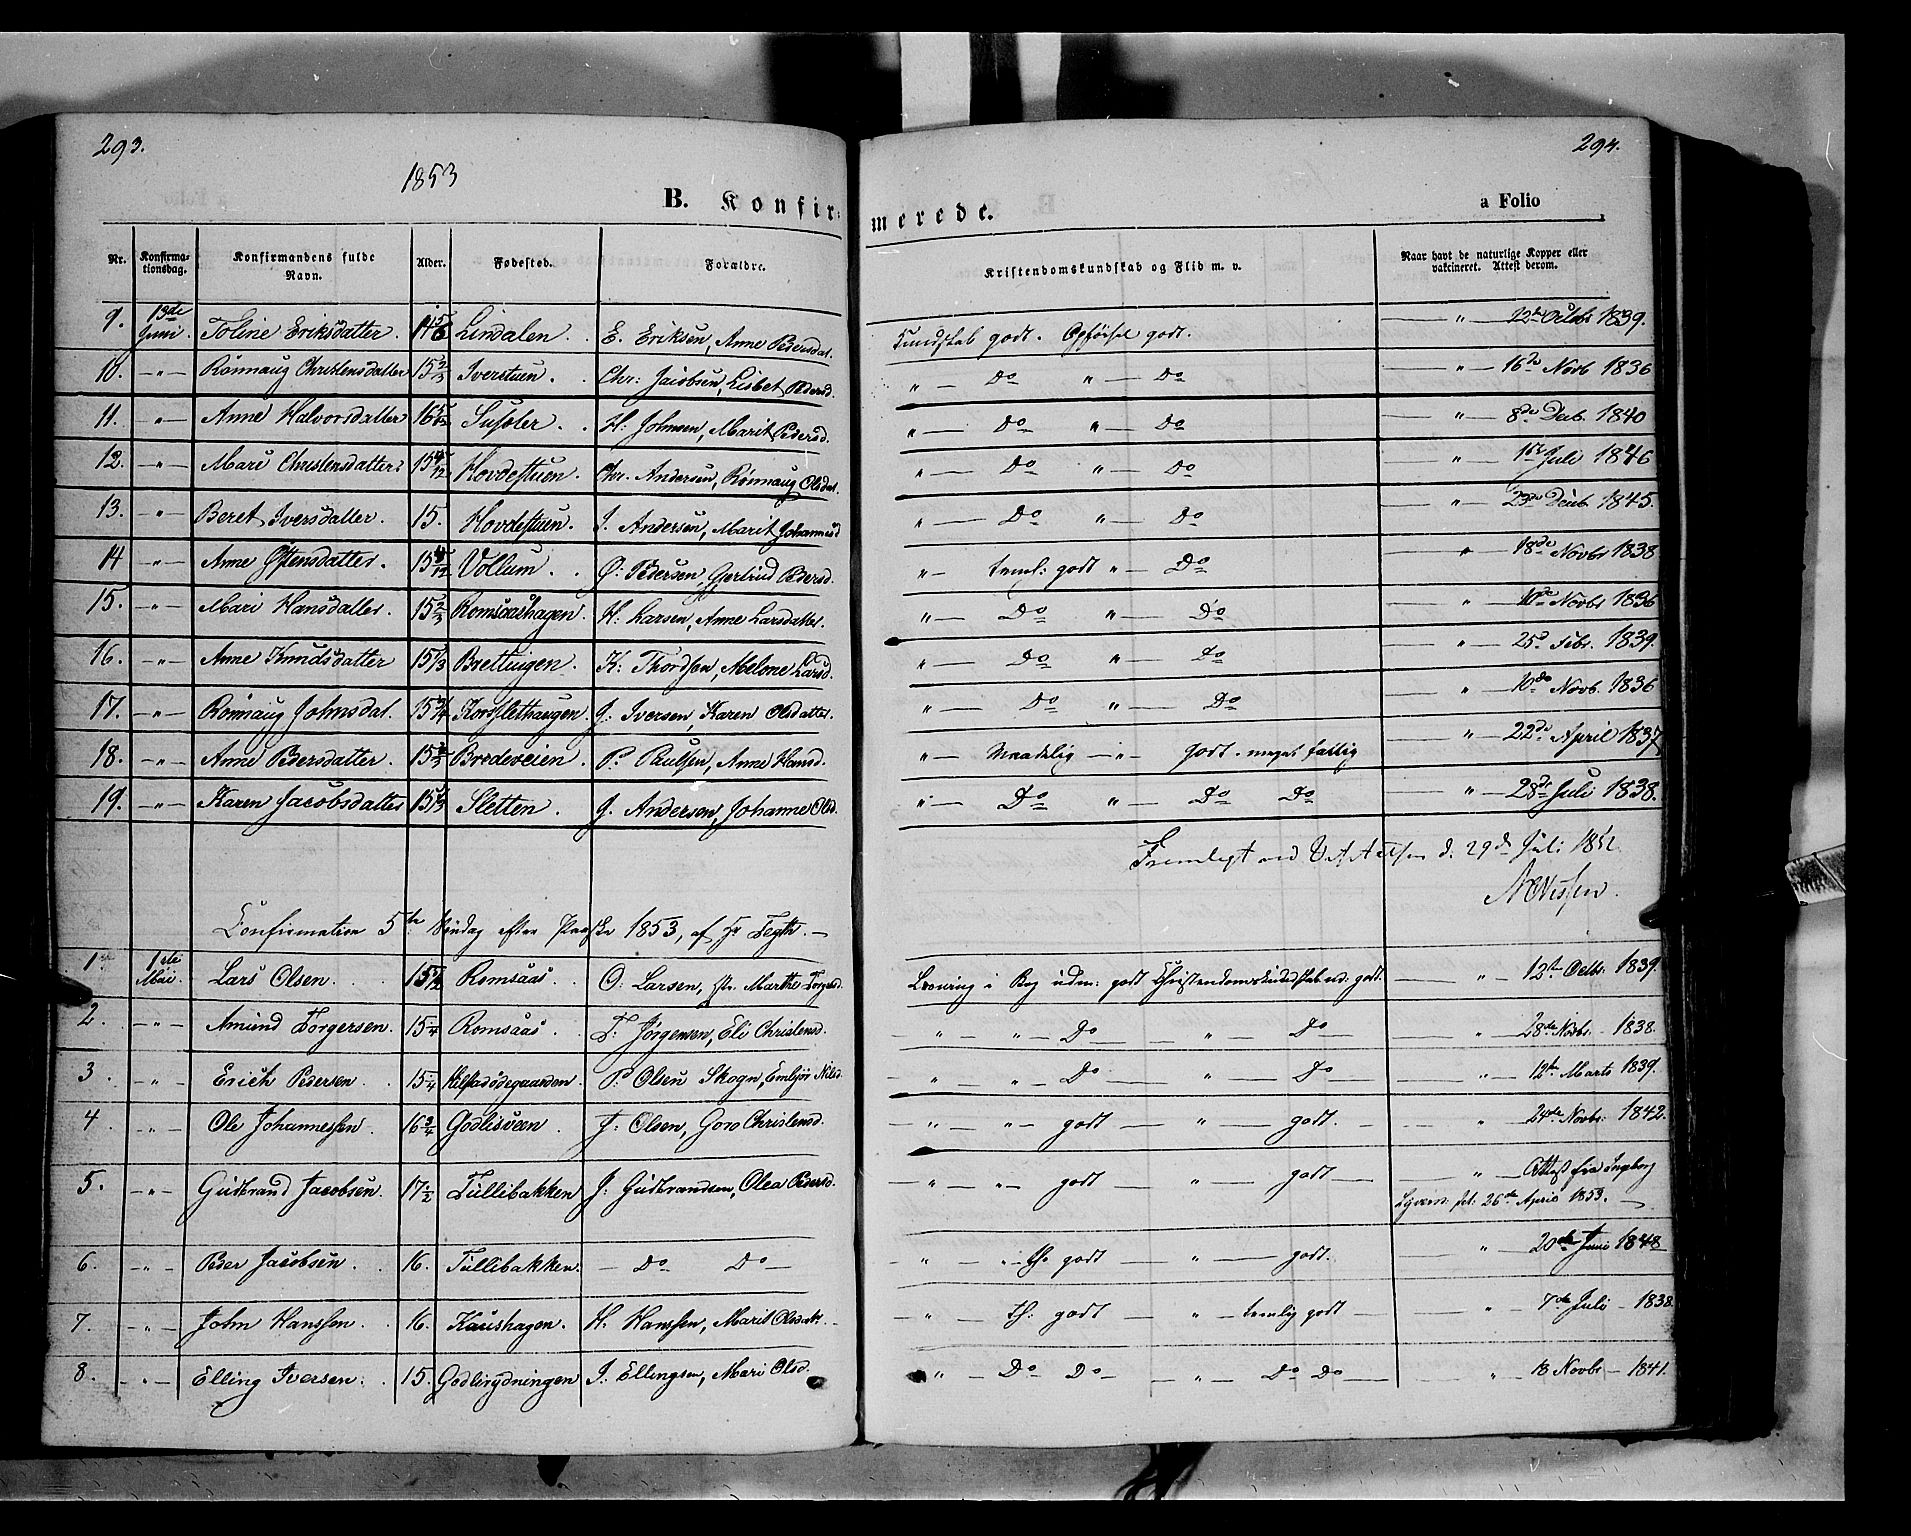 293.
294.
1853
B. Konfir-
merede.
a Folio
Nr. Konfirmationsdag. Konfirmandens fulde Navn. Alder. Fødested. Forældre. Kristendomskundskab og Flid m. v. Naar havt de naturlige Kopper eller vaktineret. Attest derom.
9. 13de Juni Toline Eriksdatter Lindalen. E. Eriksen, Anne Pedersdat. Kundskab godt. Opførsel godt. — " — 12te Octbr 1839.
10. — " — Rönnaug Christensdatter 15 2/3 Iverstuen. Chr: Jacobsen, Lisbet Pedersd. " — Do " — Do — " — 16de Novb 1836
11. — " — Anne Halvorsdatter 16 5/12 Sussler. H: Johnsen, Marit Pedersd. " — Do " — Do — " — 8de Decb. 1840
12. — " — Mari Christensdatter 15 4/12 Hovdestuen. Chr. Andersen, Rönnaug Olsdat. " — Do " — Do — " — Juli 1846
13. — " — Beret Iversdatter. 15. Hovdestuen. I. Andersen, Marit Johannesd " — Do " — Do — " — 23de Decb. 1845.
14 — " — Anne Østensdatter. 15 4/12 Vollum. Ø: Pedersen, Gjertrud Pedersd. " — teml: godt " — Do — " — 18de Novbr 1838
15. — " — Mari Hansdatter. 15 2/3 Romsaashagen. H: Larsen, Anne Larsdatter. " — Do " — Do — " — Novbr 1836
16. — " — Anne Knudsdatter 15 1/3 Brettingen. K: Thordsen, Melone Larsd. " — Do " — Do — " — 25d Febr. 1839.
17. — " — Rönnaug Johnsdat. 15 3/4 Korsslethaugen. J: Iversen, Karen Olsdatter. " — Do " — Do — " — 10de Novb. 1836
18. — " — Anne Pedersdatter 15 2/3 Bredeveien. P. Paulsen, Anne Hansd. " — Maadelig — " — godt. meget fattig — " — 22de April 1837
19. — " — Karen Jacobsdatter 15 1/3 Sletten. J. Andersen, Johanne Olsd. " — Do " — Do Do — " — 28de Juli 1838.
Fremlagt ved d. 29de Juli 185
Confirmation 5te Söndag efter Paaske 1853, af Hr Tegth. —
1 1ste Mai Lars Olsen 15 1/2 Romsaas. O: Larsen, Marthe Torgersd. Læsning i Bog uden: godt Christendomskundskab ud: godt. — " — 12te Octbr. 1839.
2. — " — Amund Torgersen. 15 1/4 Romsaas. T: Jørgensen, Eli Christensd. " — " — Do — " — Do — " — 28de Novbr. 1838.
3 — " — Erich Pedersen 15 1/4 Kelstadödegaarden. P. Olsen Skogn, Embjör Nilsd. " — " — Do — " — Do — " — 12te Marts 1839.
4 — " — Ole Johannessen. 16 3/4 Godlisveen. J: Olsen, Goro Christensd. — " — " — godt — " — godt. — " — 24de Novbr: 1842.
5. — " — Gudbrand Jacobsen. 17 1/2 Tullibakken J: Gudbrandsen, Olea Pedersd. — " — " — godt — godt — " — Attest fra Ingeborg
26de April 1853. —
6. — " — Peder Jacobsen. 16. Tullibakken: — Do Do — " — " — th. godt — " — godt. — " — 20de Juni 1848
7. — " — John Hanssen. 16. Kaushagen. H. Hanssen, Marit Olsdatt. " — th: godt — " — temlig godt — " — 7de Juli — 1838.
8. — " — Elling Iversen. 15. Godlirydningen I: Ellingsen, Mari Olsd. " — Do Do — " — Do Do — " — 18 Novbr — 1841.